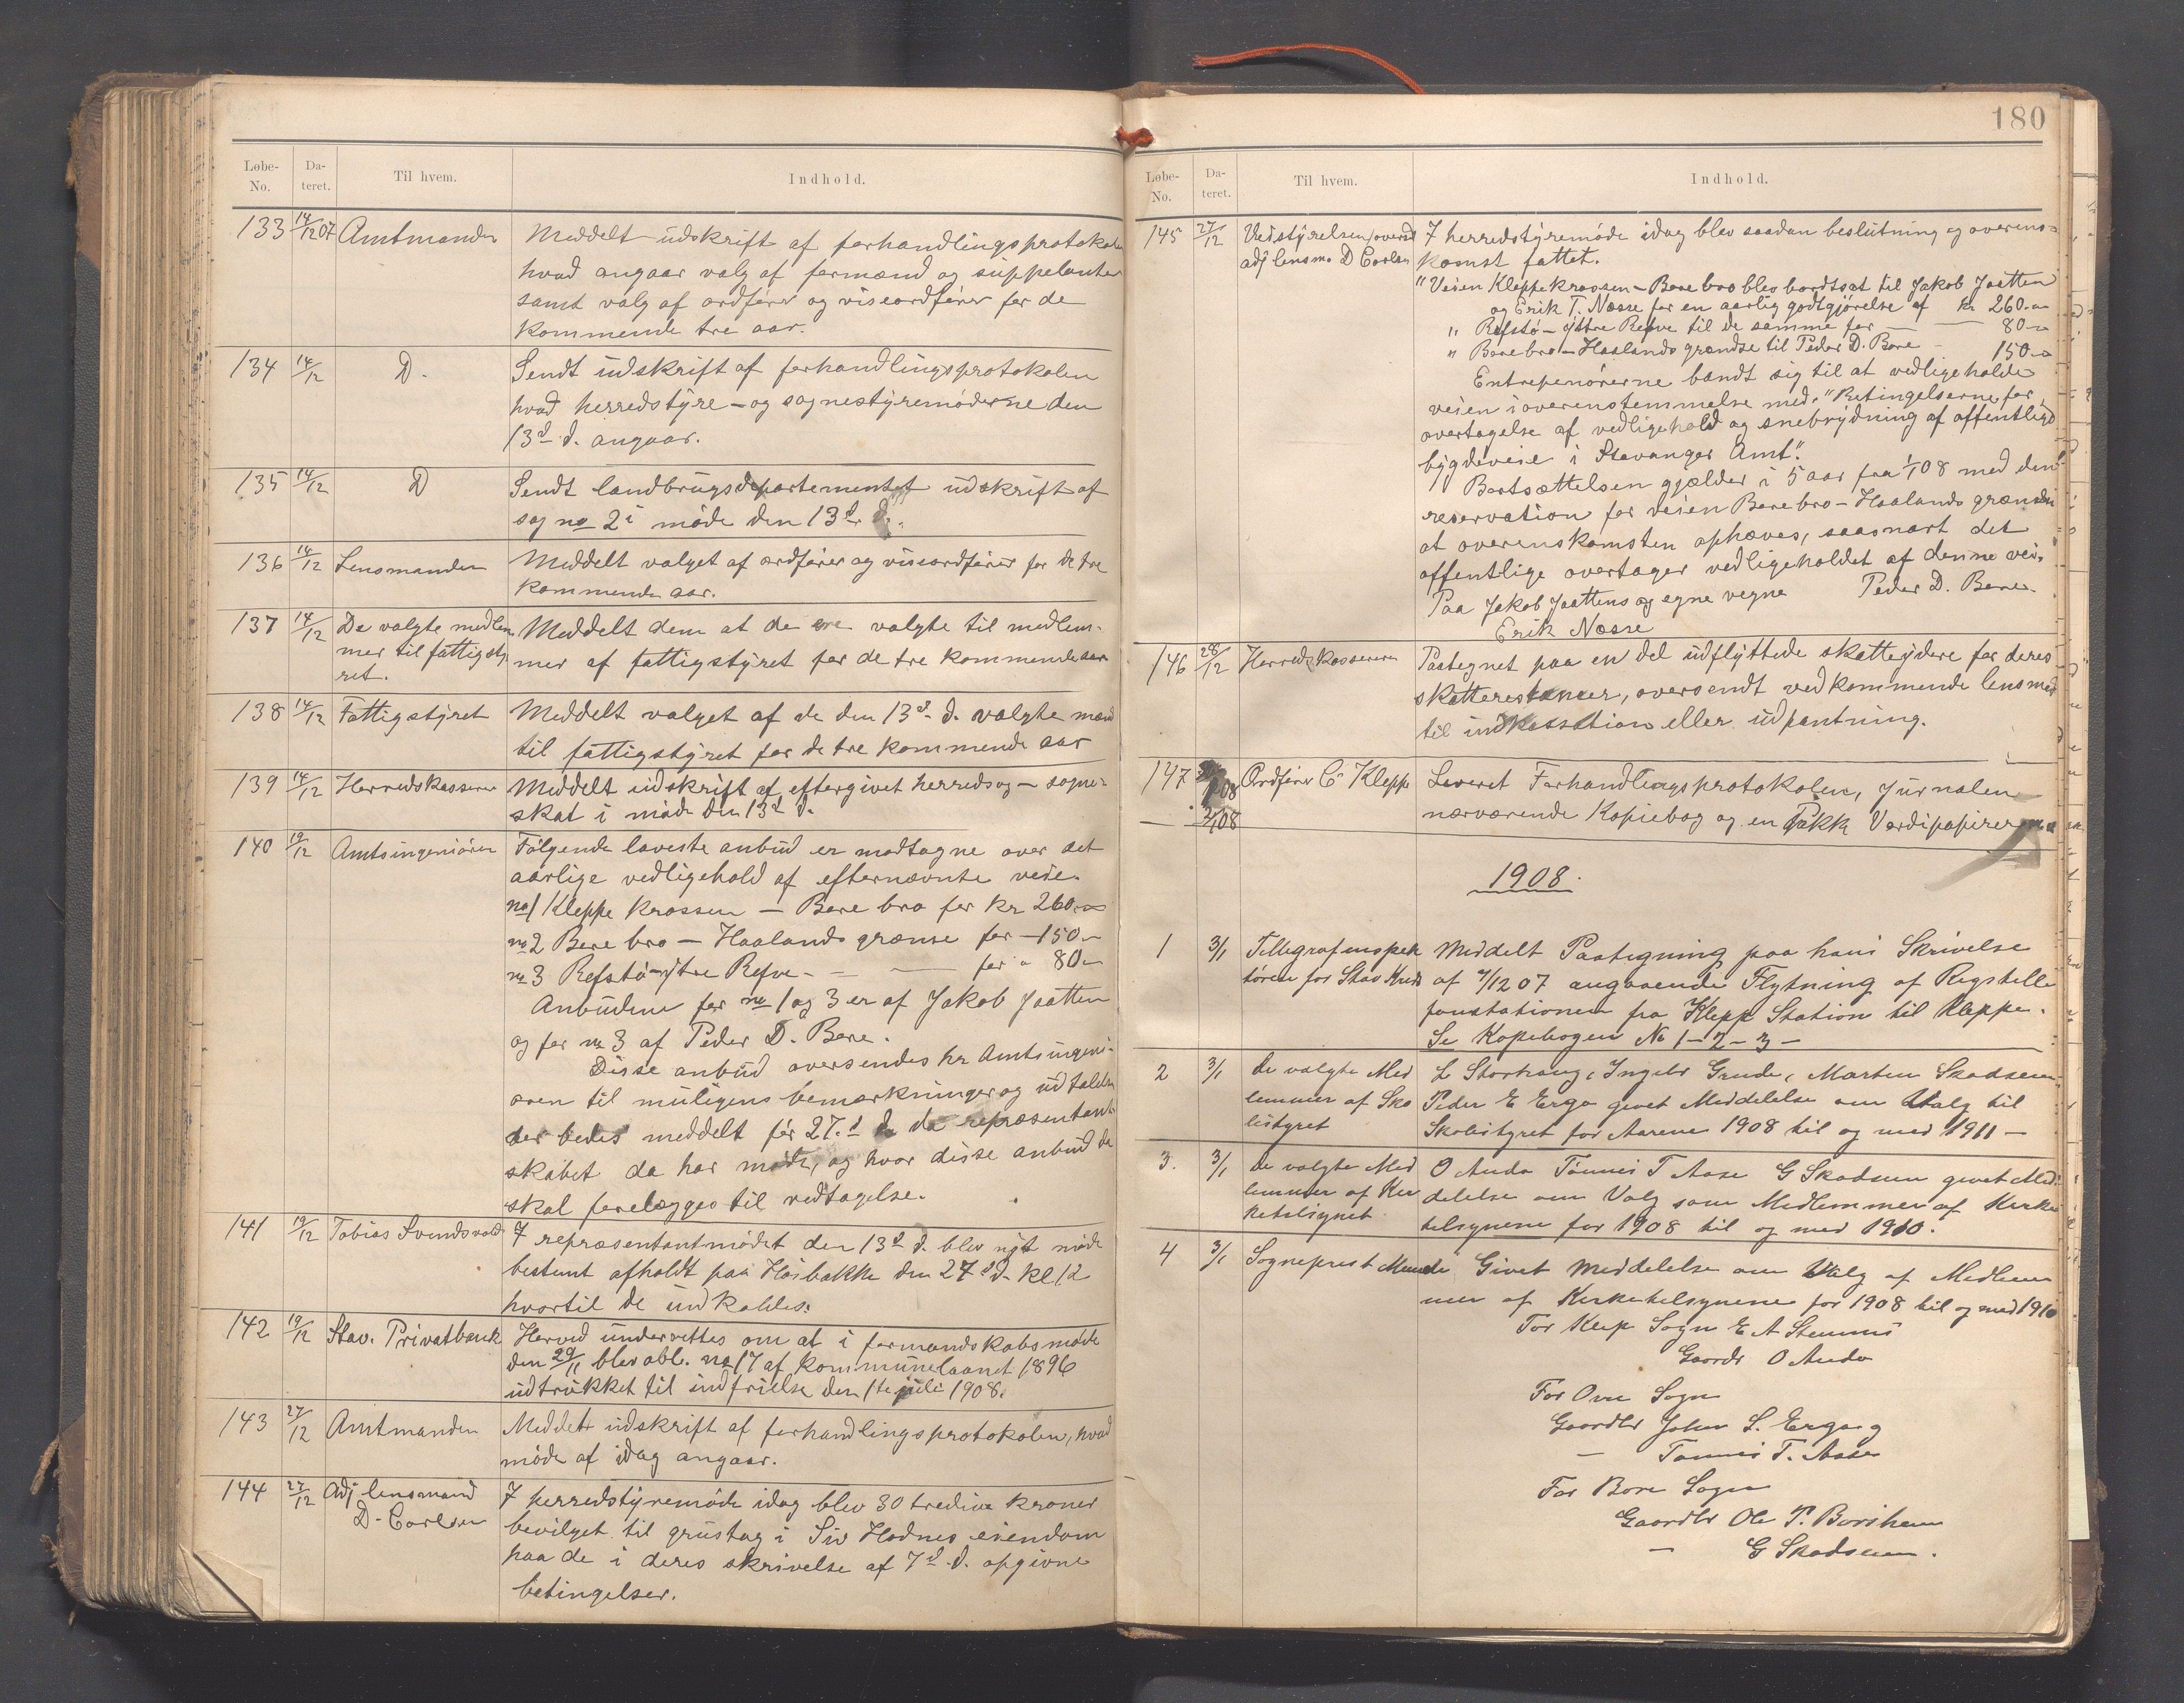 Løbe-No. Da-teret. Til hvem. Indhold.
133 14/12 07 Amtmanden Meddelt udskrift af forhandlingsprotokolen
hvad angaar valg af formænd og suppelanter
samt valg af ordfører og viseordfører for de
kommende tre aar.
134 14/12 D. Sendt udskrift af forhandlingsprotokolen
hvad herredstyre- og sognestyremøderne den
13d d. angaar.
135 14/12 D Sendt landbrugsdepartementet udskrift af
sag no 2 i møde den 13d d.
136 14/12 Lensmanden Meddelt valget af ordfører og viseordfører for de tre
kommende aar.
137 14/12 De valgte medlem- Meddelt dem at de ere valgte til medlem-
mer til fattigsty- mer af fattigstyret for de tre kommende aar
ret.
138 14/12 Fattigstyret Meddelt valget af de den 13d d. valgte mænd
til fattigstyret for de tre kommende aar
139 14/12 Herredskasserer Meddelt udskrift af eftergivet herreds og - sogne-
skat i møde den 13d d.
140 19/12 Amtsingeniøren Følgende laveste anbud er modtagne over det
aarlige vedligehold af efternævnte veie.
no 1 Kleppe krossen - Bore bro for kr 260.00
no 2 Bore bro - Haalands grænse for - 150.-
no 3 Refstø - ytre Refve - - - for " 80.-
Anbudene for no 1 og 3 er af Jakob Jaatten
og for no 3 af Peder D. Bore.
Disse anbud oversendes hr Amtsingeni-
øren til muligens bemærkninger og udtalelse
der bedes meddelt før 27.d d. da repræsentant-
skabet da har møde, og hvor disse anbud da
skal forelægges til vedtagelse.
141 19/12 Tobias Svendsvold I repræsentantmødet den 13d d. blev nyt møde
bestemt afholdt paa Høibakke den 27d d. kl 12
hvortil de indkaldes.
142 19/12 Stav. Privatbank Herved underrettes om at i formandskabsmøde
den 29/11 blev obl. no 17 af kommunelaanet 1896
udtrukket til indfrielse den 1te juli 1908.
143 27/12 Amtmanden Meddelt udskrift af forhandlingsprotokolen, hvad
møde af idag angaar.
144 27/12 Adj lensmand I herredstyremøde idag blev 30 tredive kroner
D. Carlsen bevilget til grustag i Siv Hodnes eiendom
paa de i deres skrivelse af 7d d. opgivne
betingelser.
180
Løbe-No. Da-teret. Til hvem. Indhold.
145 27/12 Veistyrelsen/oversd I herredstyremøde idag blev saadan beslutning og overens-
adj lensm. D Carlsen komst fattet.
"Veien Kleppekrossen - Bore bro blev bortsat til Jakob Jaatten
og Erik T. Næsre for en aarlig godtgjørelse af kr 260.00
" Refstø - yttre Refve til de samme for - - 80.-
" Bore bro - Haalands grændse til Peder D. Bore - 150.-
Entrepenørerne bandt sig til at vedligeholde
veien i overenstemmelse med "Betingelserne for
overtagelse af vedligehold og snebrydning af offentlige
bygdeveie i Stavanger Amt".
Bortsættelsen gjælder i 5 aar fra 1/1 08 med den
reservation for veien Bore bro - Haalands grændse
at overenskomsten ophæves, saasnart det
offentlige overtager vedligeholdet af denne vei.
Paa Jakob Jaattens og egne vegne Peder D. Bore.
Erik Næsre
146 28/12 Herredskassereren Paategnet paa en del udflyttede skatteydere for deres
skatterestancer, oversendt vedkommende lensmd
til indkassation eller udpantning.
147 2/1 08 Ordfører C. Kleppe Leveret Forhandlingsprotokolen, Jurnalen
nærværende Kopiebog og en Pakke Verdipapirer
1908.
1 3/1 Tellegrafinspek Meddelt Paategning paa hans Skrivelse
tøren for Stav Kreds af 7/12 07 angaaende Flytning af Rigstelle
fonstationen fra Klepp Station til Kleppe.
Se Kopebogen No 1-2-3-
2 3/1 de valgte Med L Storhaug, Ingebr Grude, Morten Skadsem
lemmer af Sko Peder E Erga givet Meddelelse om Valg til
lestyret Skolestyret for Aarene 1908 til og med 1911 -
3. 3/1 de valgte Med O Anda Tønnes T Aase G Skadsem givet Med-
lemmer af Kir delelse om Valg som Medlemmer af Kirke
ketilsynet tilsynene for 1908 til og med 1910.
4 3/1 Sogneprest Givet Meddelelse om Valg af Medlem
mer af Kirketilsynene for 1908 til og med 1910
For Klep Sogn E A Stemmes
Gaardr O Anda
For Orre Sogn
Gaardbr Johan S. Erga og
- Tønnes T. Aase
For Bore Sogn
Gaardbr Ole P. Borsheim
- G Skadsem.